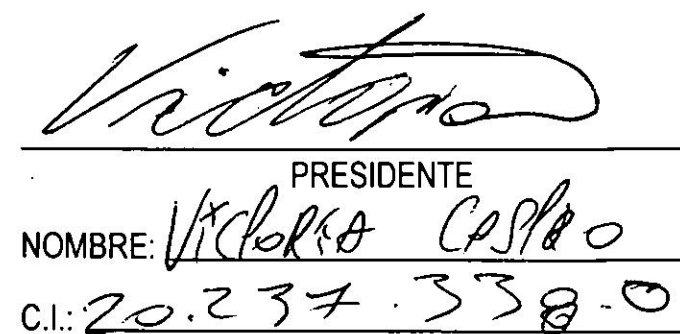 Victoria
PRESIDENTE
NOMBRE: Victoria Castro
C.I.: 20.237.338-0